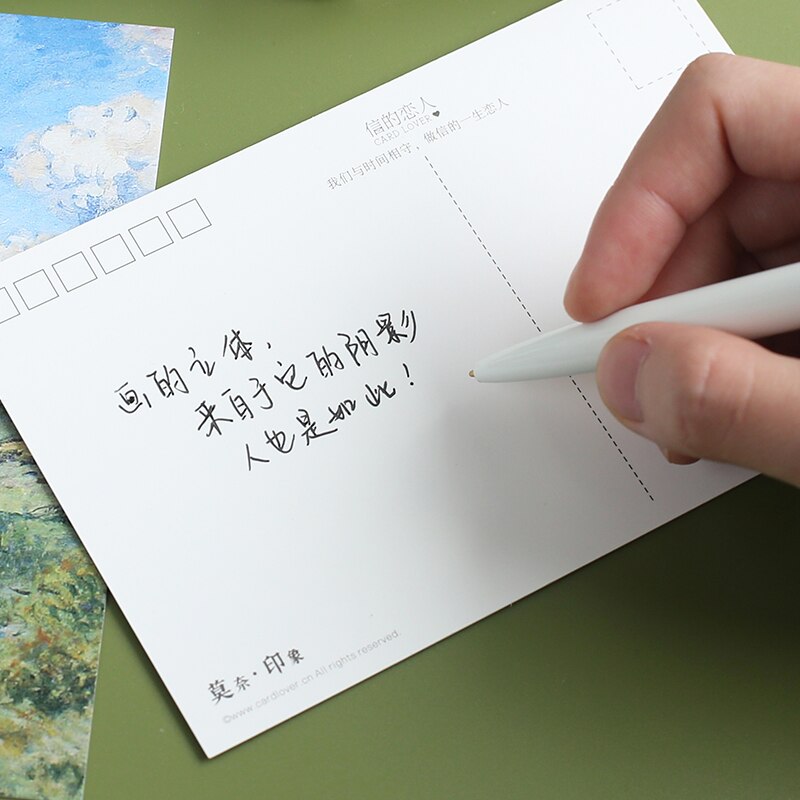 信的恋人
CARD LOVER
我们与时间相守，做信的一生恋人
画的立体，
来自于它的阴影
人也是如此！
莫奈·印象
©www.cardlover.cn All rights reserved.